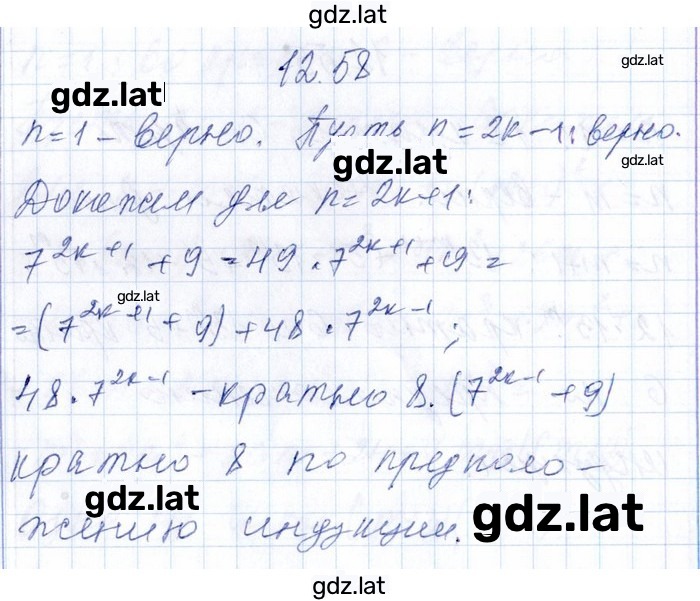 gdz.latt
12.58
gdz.lat
gdz.lat
n=1 – верно. Пусть n=2k–1: верно.
gdz.lat
gdz.lat
Докажем для n=2k+1:
7^{2k+1} + 9 = 49 · 7^{2k+1} + 9 =
gdz.lat
= (7^{2k+1} + 9) + 48 · 7^{2k-1};
48 · 7^{2k-1} – кратно 8. (7^{2k-1} + 9)
кратно 8 по предполо-
gdz.lat
жению индукции.
gdz.lat
gdz.lat